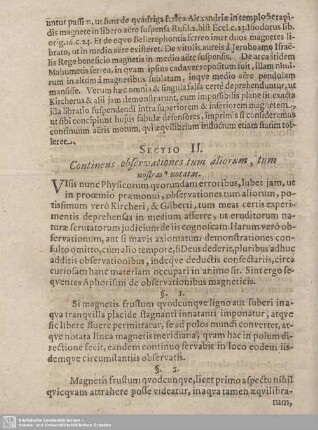 untur passim, ut sunt de quadriga ferrea Alexandriæ in templo Serapidis
magnete in libero aëre suspensa Ruffin. hist. Eccl. c. 23. Isidorus lib.
orig. 16. c. 24. Et de equo Bellerephontis ferreo inter duos magnetes librato,
ut in medio aëre existeret. De vitulis aureis â Jeroboamo Israëlis
Rege beneficio magnetis in medio aëre suspensis. De arca itidem
Mahumetis ferrea, in quam ipsius cadaver repositum fuit, illam nimirum
in altum â magnetibus sublatam, inque medio aëre pendulam
mansisse. Verum hæc omnia & singula falsa certè deprehenduntur, ut
Kircherus & alii jam demonstrarunt, cum impossibilis planè sit exacta
illa libratio suspendendi intra superiorem & inferiorem magnetem,
ut sibi concipiunt hujus fabulæ defensores, imprimis si consideremus
continuum aëris motum, qui æquilibrium inductum etiam statim tolleret.
SECTIO II.
Continens observationes tum aliorum, tum
nostras notatas.
VIsis nunc Physicorum quorundam erroribus, lubet jam, ut
in prooemio præmonui, observationes tum aliorum, potissimum
verò Kircheri, & Gilberti, tum meas certis experimentis
deprehensas in medium afferre, ut eruditorum naturæ
scrutatorum judicium de iis cognoscam. Harum verò observationum,
aut si mavis axiomatum demonstrationes consulto
omitto, cùm alio tempore, si Deus dederit, pluribus adhuc
additis observationibus, indeque deductis consectariis, circa
curiosam hanc materiam occupari in animo sit. Sint ergo sequentes
Aphorismi de observationibus magneticis.
§. 1.
Si magnetis frustum quodcunque ligno aut suberi in aqua
tranquilla placide stagnanti innatanti imponatur, atque
sic libere fluere permittatur, se ad polos mundi convertet, atque
notata linea magnetis meridiana, quam hac in polum directione
fecit, eandem continuo servabit in loco eodem iisdemque
circumstantiis observatis.
§. 2.
Magnetis frustum quodcunque, licet primo aspectu nihil
quicquam attrahere posse videatur, in aqua tamen æquilibratum,